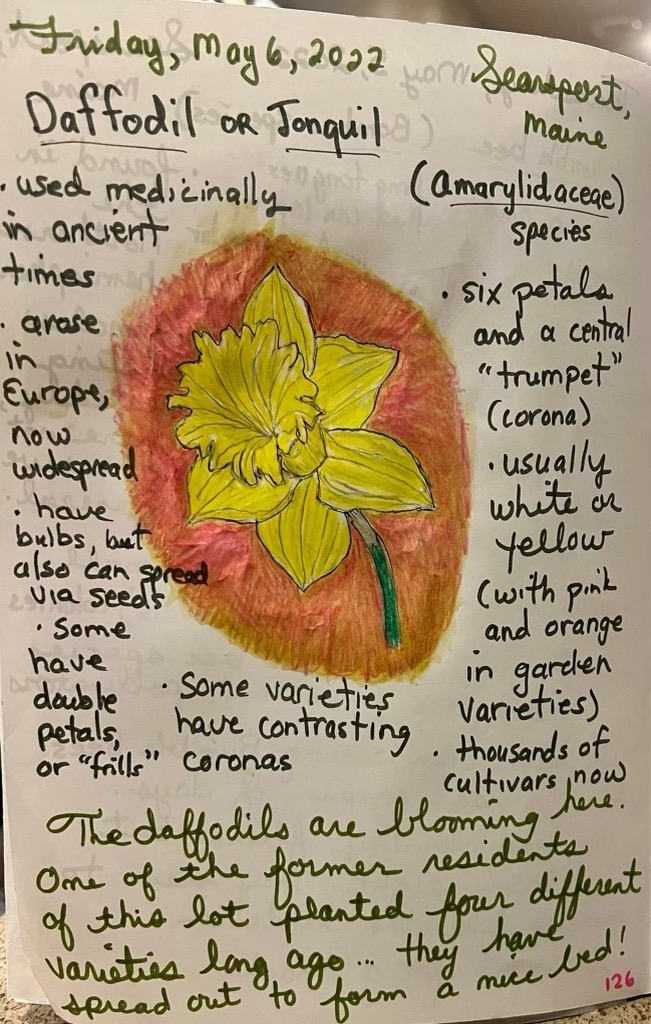 Friday, May 6, 2022
Searsport,
Maine
Daffodil or Jonquil
(Amarylidaceae)
species
· used medicinally
in ancient
times
· arose
in
Europe,
now
widespread
· have
bulbs, but
also can spread
via seeds
· Some
have
double
petals,
or "frills"
· Some varieties
have contrasting
coronas
· six petals
and a central
"trumpet"
(corona)
· usually
white or
yellow
(with pink
and orange
in garden
varieties)
· thousands of
cultivars now
The daffodils are blooming here.
One of the former residents
of this lot planted four different
varieties long ago... they have
spread out to form a nice bed!
126